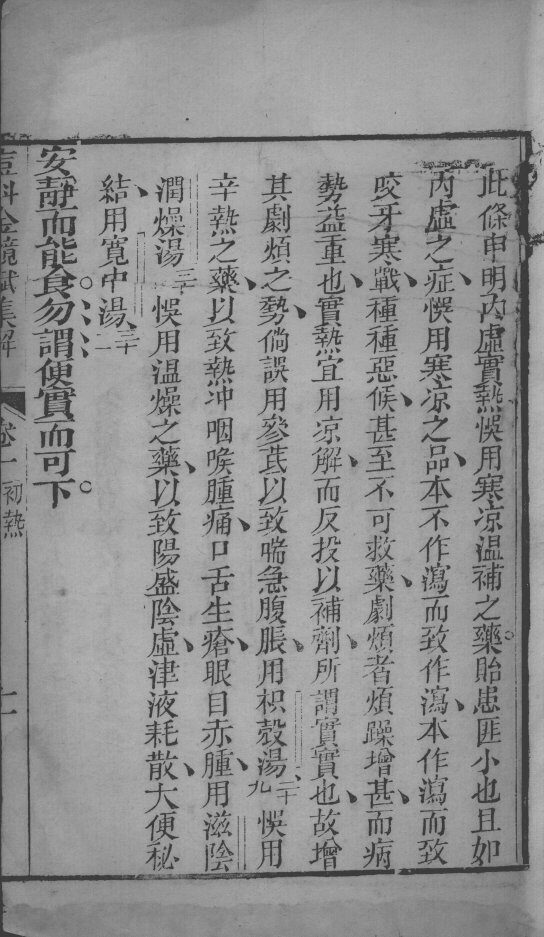 此條申明內虛實熱悞用寒凉温補之藥貽患匪小也且如
內虛之症悞用寒凉之品本不作瀉而致作瀉本作瀉而致
咬牙寒戰種種惡候甚至不可救藥劇煩者煩躁增甚而病
勢益重也實熱宜用凉解而反投以補劑所謂實實也故增
其劇煩之勢倘誤用參芪以致喘急腹脹用枳殼湯二十九悞用
辛熱之藥以致熱冲咽喉腫痛口舌生瘡眼目赤腫用滋陰
潤燥湯三十悞用温燥之藥以致陽盛陰虛津液耗散大便秘
結用寬中湯三十一
安靜而能食勿謂便實而可下
痘科金鏡賦集解 卷一 初熱